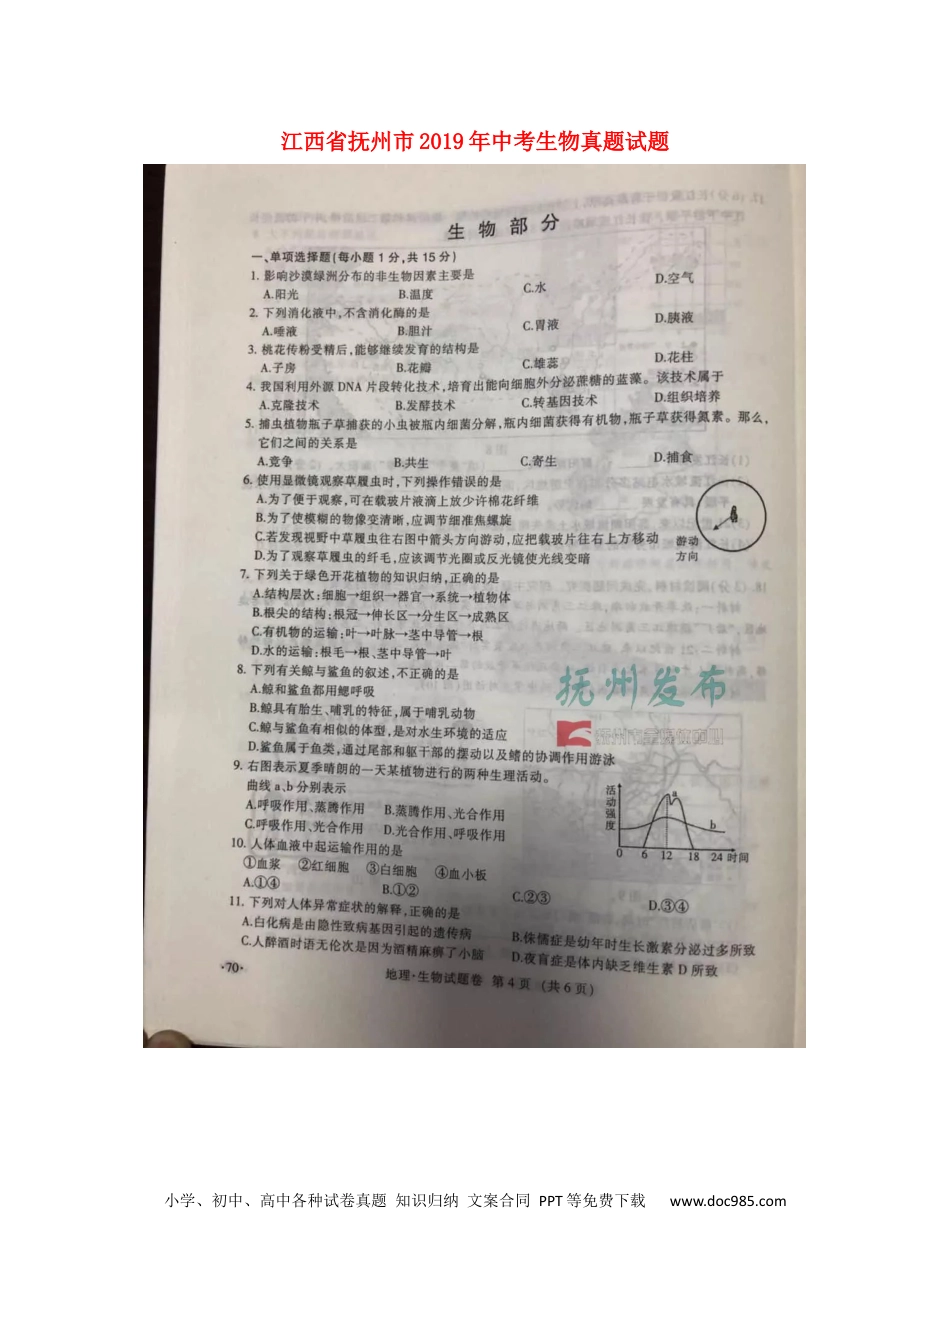 江西省抚州市2019年中考生物真题试题
生 物 部 分
一、单项选择题(每小题1分,共15分)
1. 影响沙漠绿洲分布的非生物因素主要是
A.阳光 B.温度 C.水 D.空气
2. 下列消化液中,不含消化酶的是
A.唾液 B.胆汁 C.胃液 D.胰液
3. 桃花传粉受精后,能够继续发育的结构是
A.子房 B.花瓣 C.雄蕊 D.花柱
4. 我国利用外源DNA片段转化技术,培育出能向细胞外分泌蔗糖的蓝藻。该技术属于
A.克隆技术 B.发酵技术 C.转基因技术 D.组织培养
5. 捕虫植物瓶子草捕获的小虫被瓶内细菌分解,瓶内细菌获得有机物,瓶子草获得氮素。那么,
它们之间的关系是
A.竞争 B.共生 C.寄生 D.捕食
6. 使用显微镜观察草履虫时,下列操作错误的是
A.为了便于观察,可在载玻片液滴上放少许棉花纤维
B.为了使模糊的物像变清晰,应调节细准焦螺旋
C.若发现视野中草履虫往右图中箭头方向游动,应把载玻片往右上方移动
D.为了观察草履虫的纤毛,应该调节光圈或反光镜使光线变暗
游动
方向
7. 下列关于绿色开花植物的知识归纳,正确的是
A.结构层次:细胞→组织→器官→系统→植物体
B.根尖的结构:根冠→伸长区→分生区→成熟区
C.有机物的运输:叶→叶脉→茎中导管→根
D.水的运输:根毛→根、茎中导管→叶
8. 下列有关鲸与鲨鱼的叙述,不正确的是
A.鲸和鲨鱼都用鳃呼吸
B.鲸具有胎生、哺乳的特征,属于哺乳动物
C.鲸与鲨鱼有相似的体型,是对水生环境的适应
D.鲨鱼属于鱼类,通过尾部和躯干部的摆动以及鳍的协调作用游泳
抚州发布
9. 右图表示夏季晴朗的一天某植物进行的两种生理活动。
曲线a、b分别表示
A.呼吸作用、蒸腾作用 B.蒸腾作用、光合作用
C.呼吸作用、光合作用 D.光合作用、呼吸作用
活动强度
a
b
0 6 12 18 24 时间
10. 人体血液中起运输作用的是
①血浆 ②红细胞 ③白细胞 ④血小板
A.①④ B.①② C.②③ D.③④
11. 下列对人体异常症状的解释,正确的是
A.白化病是由隐性致病基因引起的遗传病 B.侏儒症是幼年时生长激素分泌过多所致
C.人醉酒时语无伦次是因为酒精麻痹了小脑 D.夜盲症是体内缺乏维生素D所致
·70·
地理·生物试题卷 第4页 (共6页)
小学、初中、高中各种试卷真题 知识归纳 文案合同 PPT等免费下载 www.doc985.com